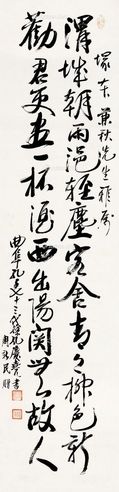 塚本秋先生雅属
渭城朝雨浥輕塵客舍青々柳色新
勸君更盡一杯酒西出陽關無故人
曲阜孔子七十三代孫孔慶書
民贈